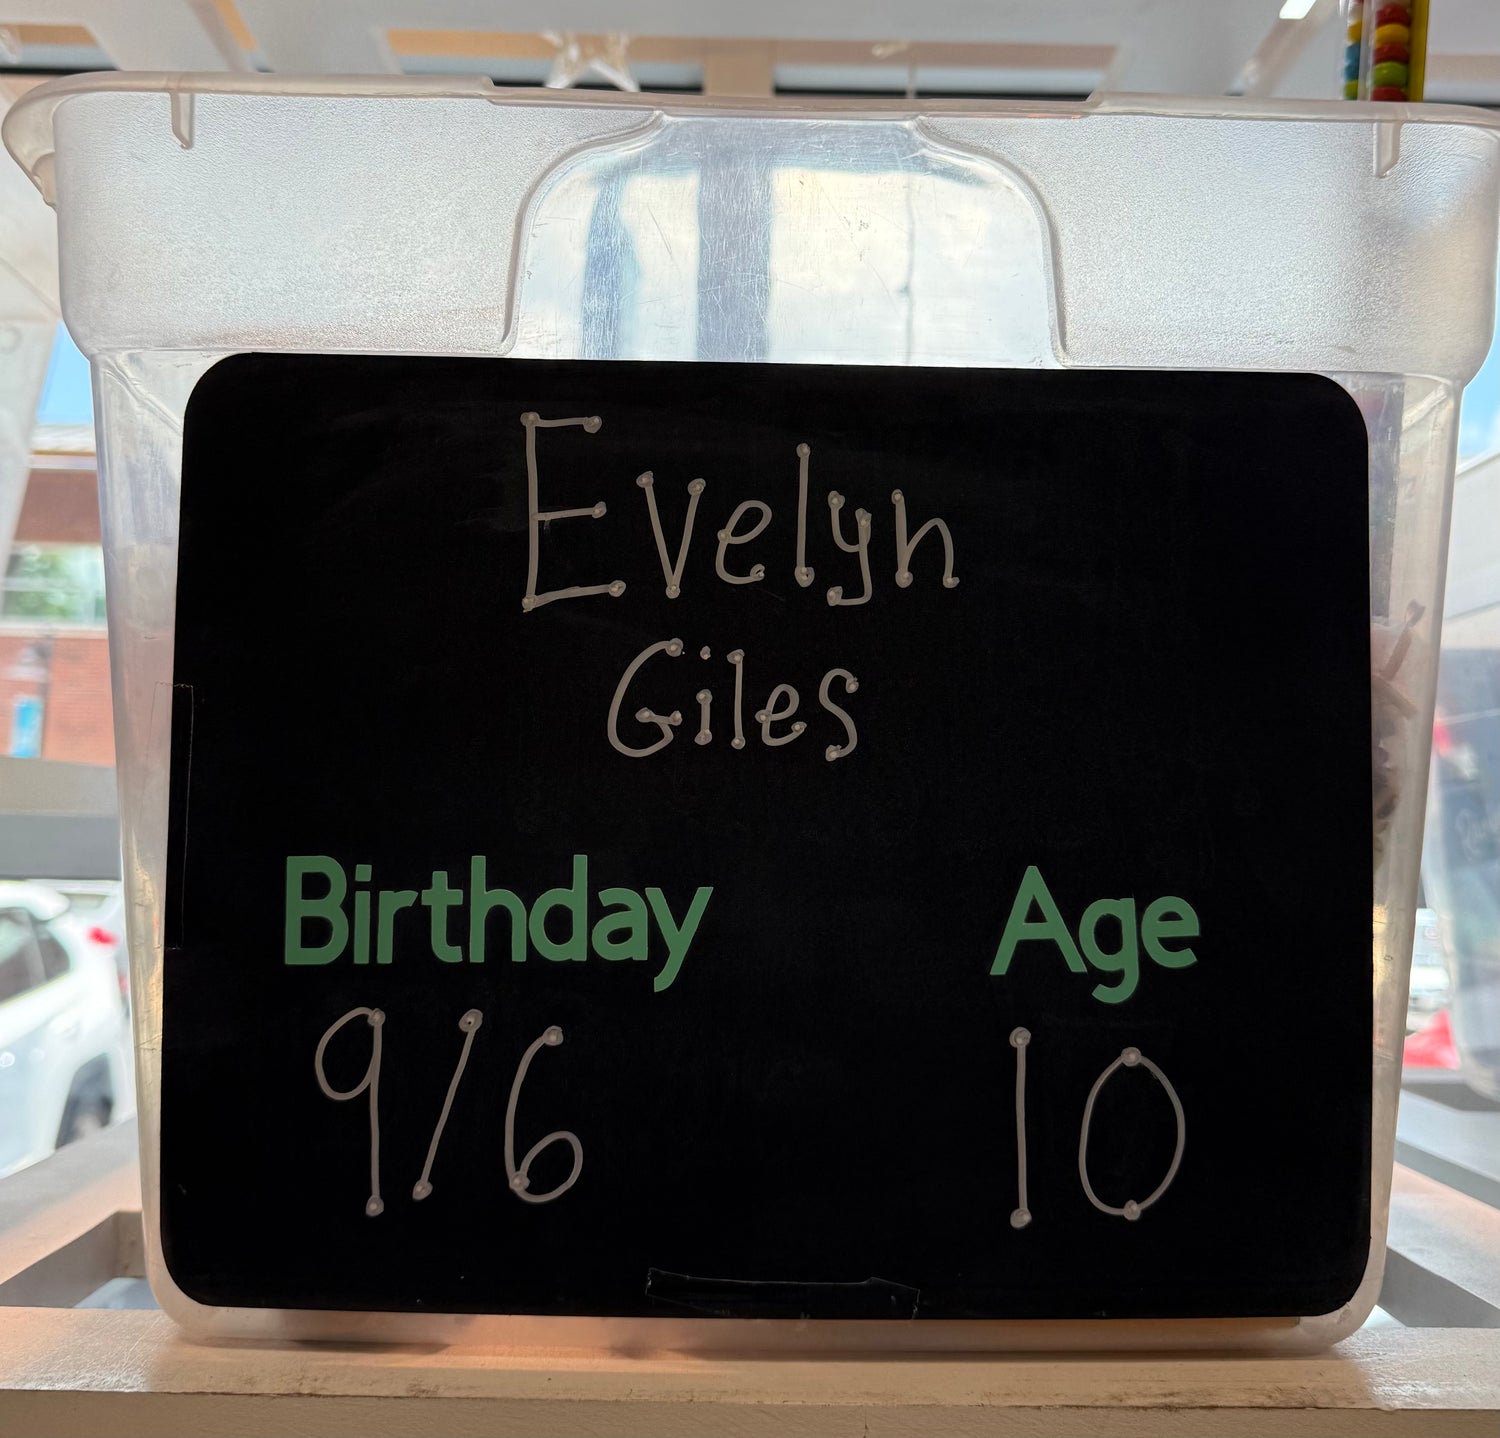 Evelyn
Giles
Birthday Age
9/6 10